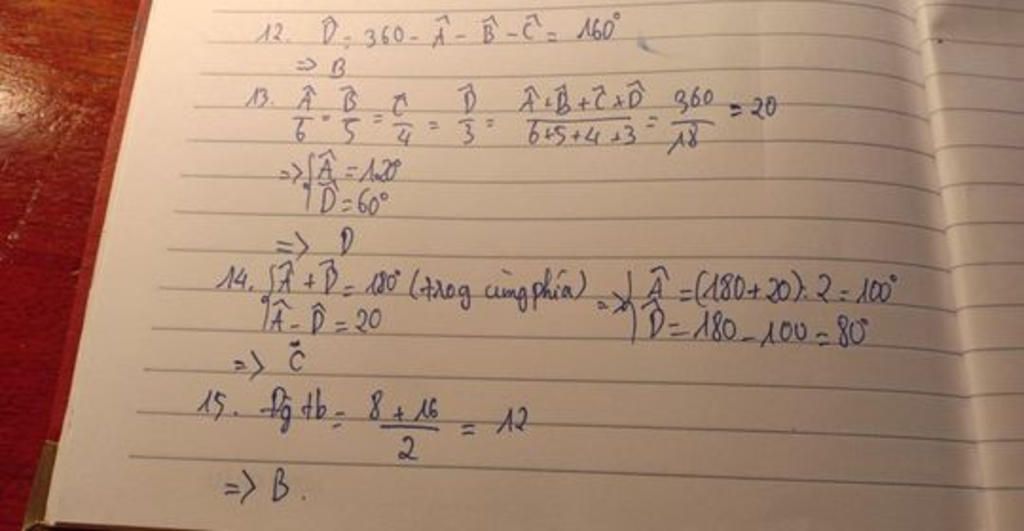 12. D̂ = 360 - Â - B̂ - Ĉ = 160°
=> B
13. Â/6 = B̂/5 = Ĉ/4 = D̂/3 = (Â+B̂+Ĉ+D̂)/(6+5+4+3) = 360/18 = 20
=> { Â = 120°
D̂ = 60°
=> D
14. { Â + D̂ = 180° (trog cùng phía) => { Â = (180+20):2 = 100°
Â - D̂ = 20 D̂ = 180 - 100 = 80°
=> C
15. Đg tb = (8+16)/2 = 12
=> B.